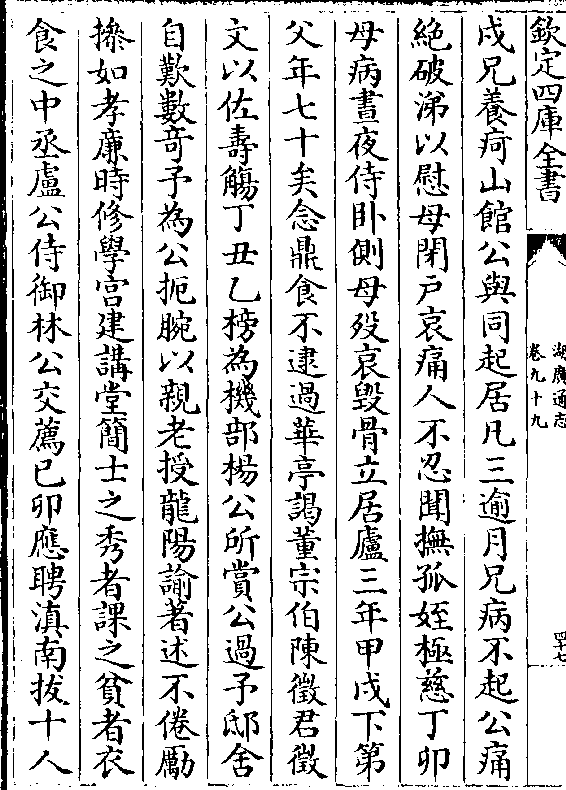 欽定四庫全書
湖廣通志
卷九十九
四十七
戌兄養疴山館公與同起居凡三逾月兄病不起公痛
絶破涕以慰母閉戸哀痛人不忍聞撫孤姪極慈丁卯
母病晝夜侍卧側母殁哀毀骨立居廬三年甲戌下第
父年七十矣念鼎食不逮過華亭謁董宗伯陳徵君徵
文以佐壽觴丁丑乙榜為機部楊公所賞公過予邸舍
自歎數竒予為公扼腕以親老授龍陽諭著述不倦勵
操如孝亷時修學宫建講堂簡士之秀者課之貧者衣
食之中丞盧公侍御林公交薦已卯應聘滇南拔十人